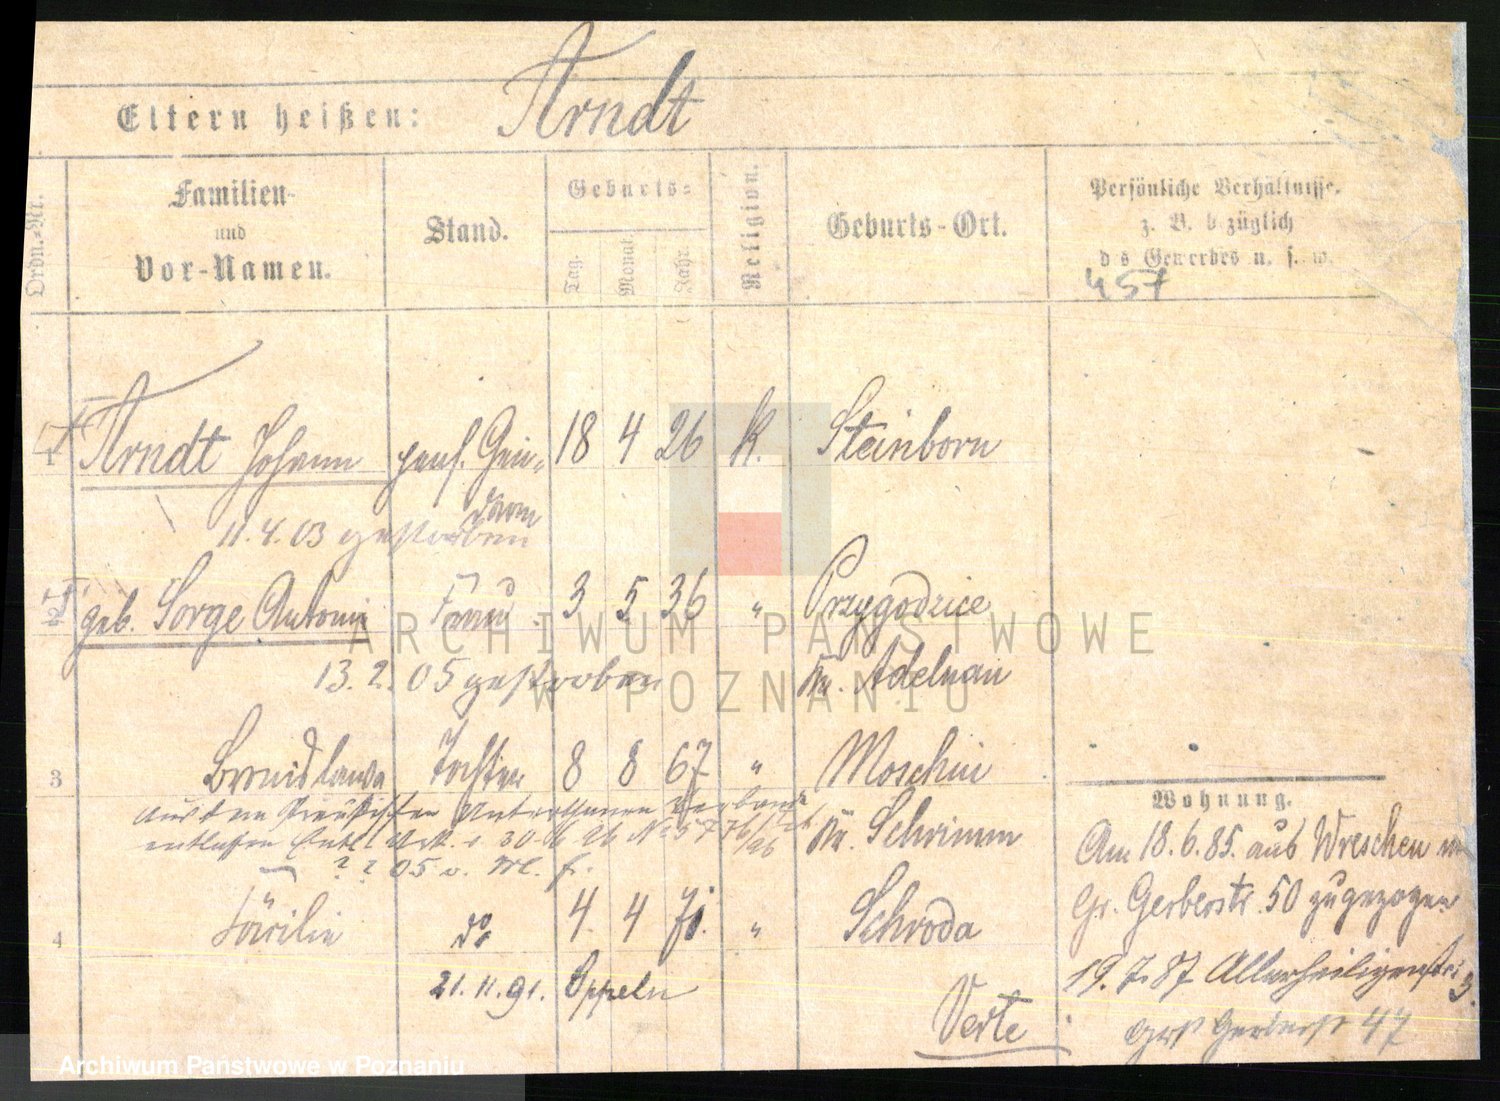 Eltern heißen: Arndt
Ordn.-Nr.
Familien-
und
Vor-Namen.
Stand.
Geburts-
Tag.
Monat
Jahr.
Religion.
Geburts-Ort.
Persönliche Verhältnisse.
z. B. bezüglich
des Gewerbes u. s. w.
457
1 Arndt Johann pens. Gen- 18 4 26 k. Steinborn
darm
11.4.03 gestorben
2 geb. Sorge Antonie Frau 3 5 36 " Przygodzice
13.2.05 gestorben Kr. Adelnau
3 Bronislawa Tochter 8 8 67 " Moschin
aus dem Preußischen Unterthanen Verbande Kr. Schrimm
entlassen
? ? 05 v. M. f.
4 Cäcilie do 4. 4 71. " Schroda
21.11.91. Oppeln
Verte
Wohnung.
Am 18.6.85. aus Wreschen
Gr. Gerberstr. 50 zugezogen
19.7.87 Allerheiligenstr. 3.
Gerberst 47
ARCHIWUM PAŃSTWOWE
W POZNANIU
Archiwum Państwowe w Poznaniu